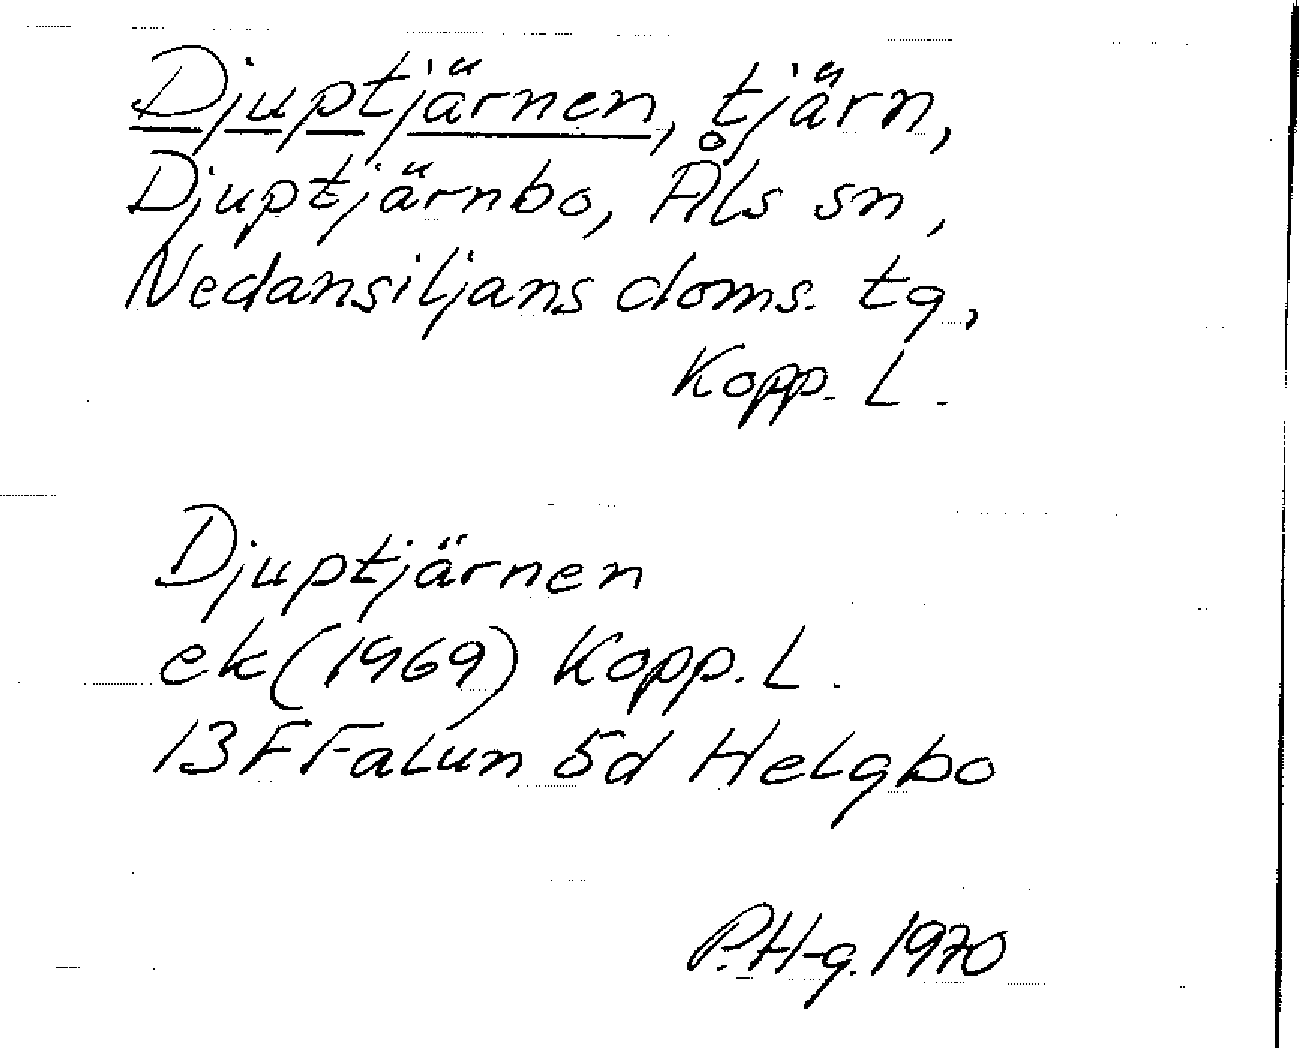 Djuptjärnen, tjärn,
Djuptjärnbo, Åls sn,
Nedansiljans doms. tg,
Kopp. L.
Djuptjärnen
ek (1969) Kopp. L.
13F Falun 5d Helgbo
P.H-g. 1970